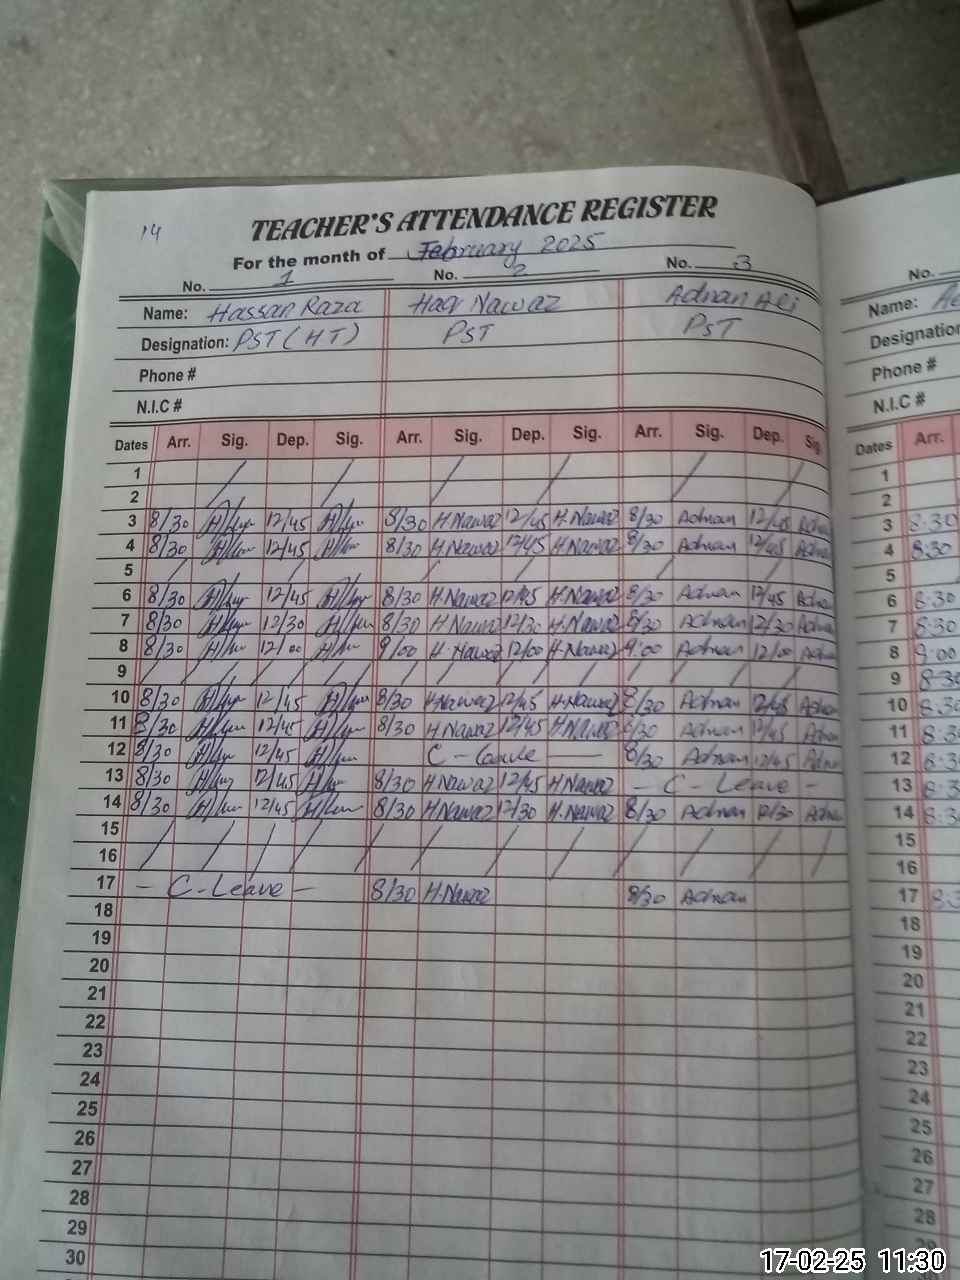 14
TEACHER'S ATTENDANCE REGISTER
For the month of February 2025
No. 1 No. 2 No. 3
Name: Hassan Raza Haq Nawaz Adnan Ali
Designation: PST (HT) PST PST
Phone #
N.I.C #
Dates Arr. Sig. Dep. Sig. Arr. Sig. Dep. Sig. Arr. Sig. Dep. Sig
1
2
3 8/30 12/45 8/30 H.Nawaz 12/45 H.Nawaz 8/30 Adnan 12/45 Adnan
4 8/30 12/45 8/30 H.Nawaz 12/45 H.Nawaz 8/30 Adnan 12/45 Adnan
5
6 8/30 12/45 8/30 H.Nawaz 12/45 H.Nawaz 8/30 Adnan 12/45 Adnan
7 8/30 12/30 8/30 H.Nawaz 12/30 H.Nawaz 8/30 Adnan 12/30 Adnan
8 8/30 12/00 9/00 H.Nawaz 12/00 H.Nawaz 9:00 Adnan 12/00 Adnan
9
10 8/30 12/45 8/30 H.Nawaz 12/45 H.Nawaz 8/30 Adnan 12/45 Adnan
11 8/30 12/45 8/30 H.Nawaz 12/45 H.Nawaz 8/30 Adnan 12/45 Adnan
12 8/30 12/45 C-Leave 8/30 Adnan 12/45 Adnan
13 8/30 12/45 8/30 H.Nawaz 12/45 H.Nawaz - C - Leave -
14 8/30 12/45 8/30 H.Nawaz 12/30 H.Nawaz 8/30 Adnan 12/30 Adnan
15
16
17 - C-Leave - 8/30 H.Nawaz 8/30 Adnan
18
19
20
21
22
23
24
25
26
27
28
29
30
No.
Name:
Designation
Phone #
N.I.C #
Dates Arr.
1
2
3 8:30
4 8:30
5
6 8:30
7 8:30
8 9:00
9
10
11
12
13
14
15
16
17
18
19
20
21
22
23
24
25
26
27
28
17-02-25 11:30